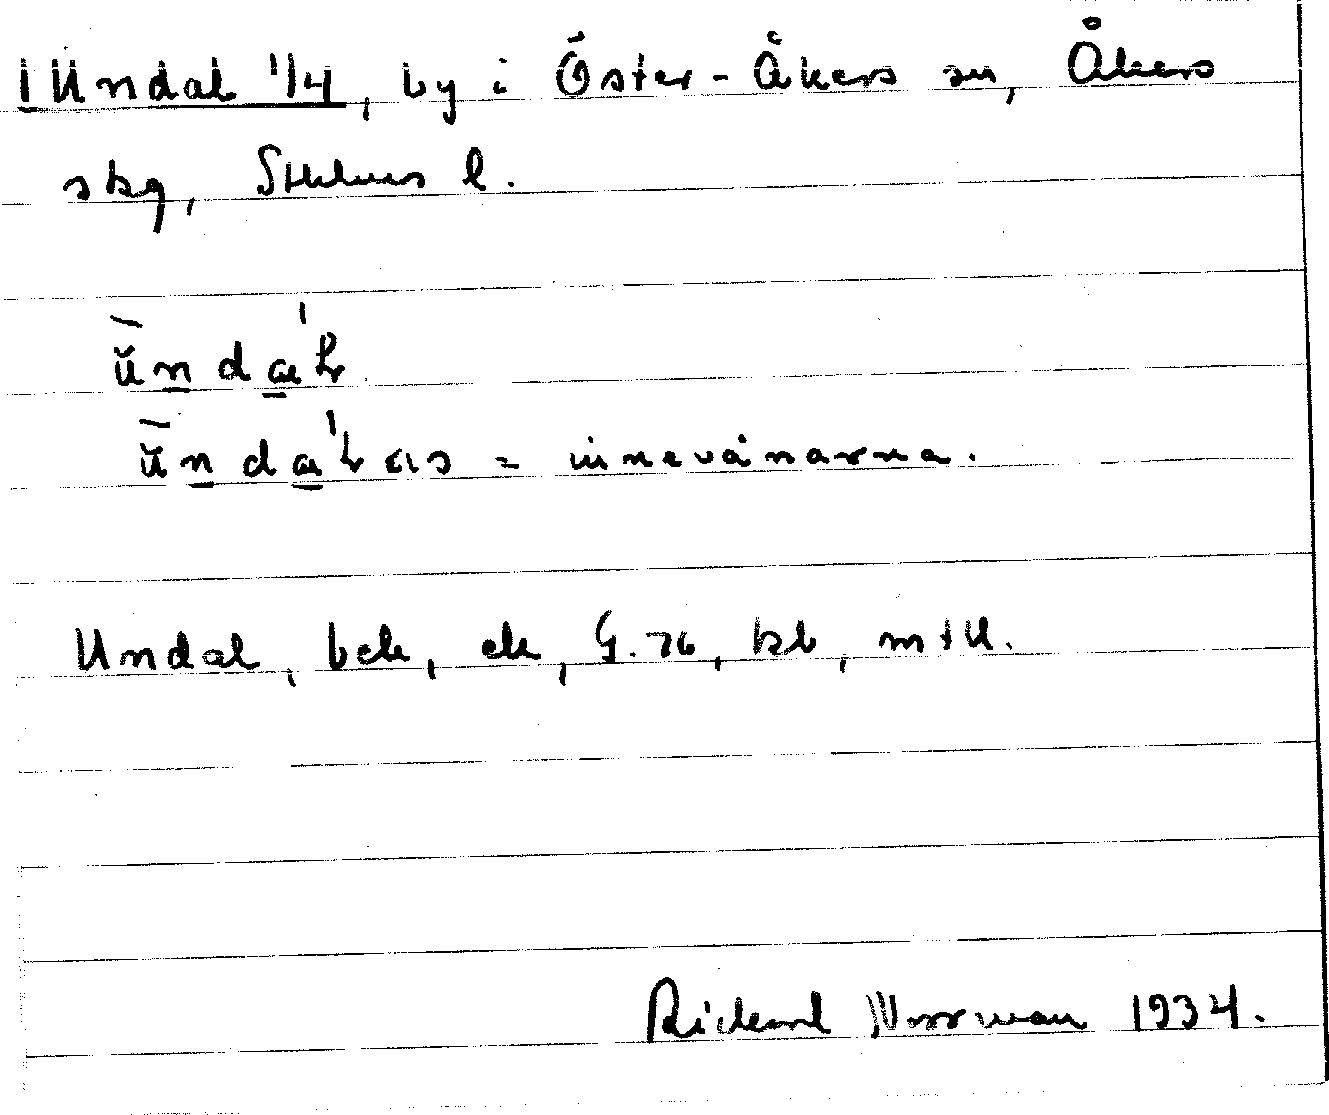 1 Undal 1/4, by i Öster-Åkers sn, Åkers
skg, Sthlms l.
ŭndal
ŭndalas = innevånarna.
Undal, bck, ek, G. 76, kb, mtll.
Rickard Norrman 1934.